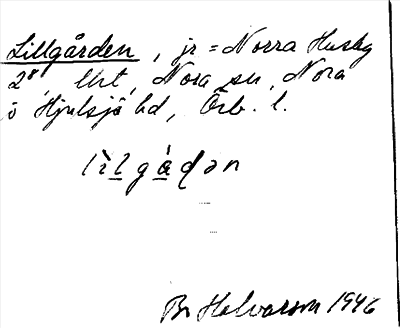 Lillgården, jr = Norra Husby
2⁸, Urt, Nora sn, Nora
o Hjulsjö bd, Örb. l.
lìl gá̀ḍən
Br Halvarson 1946